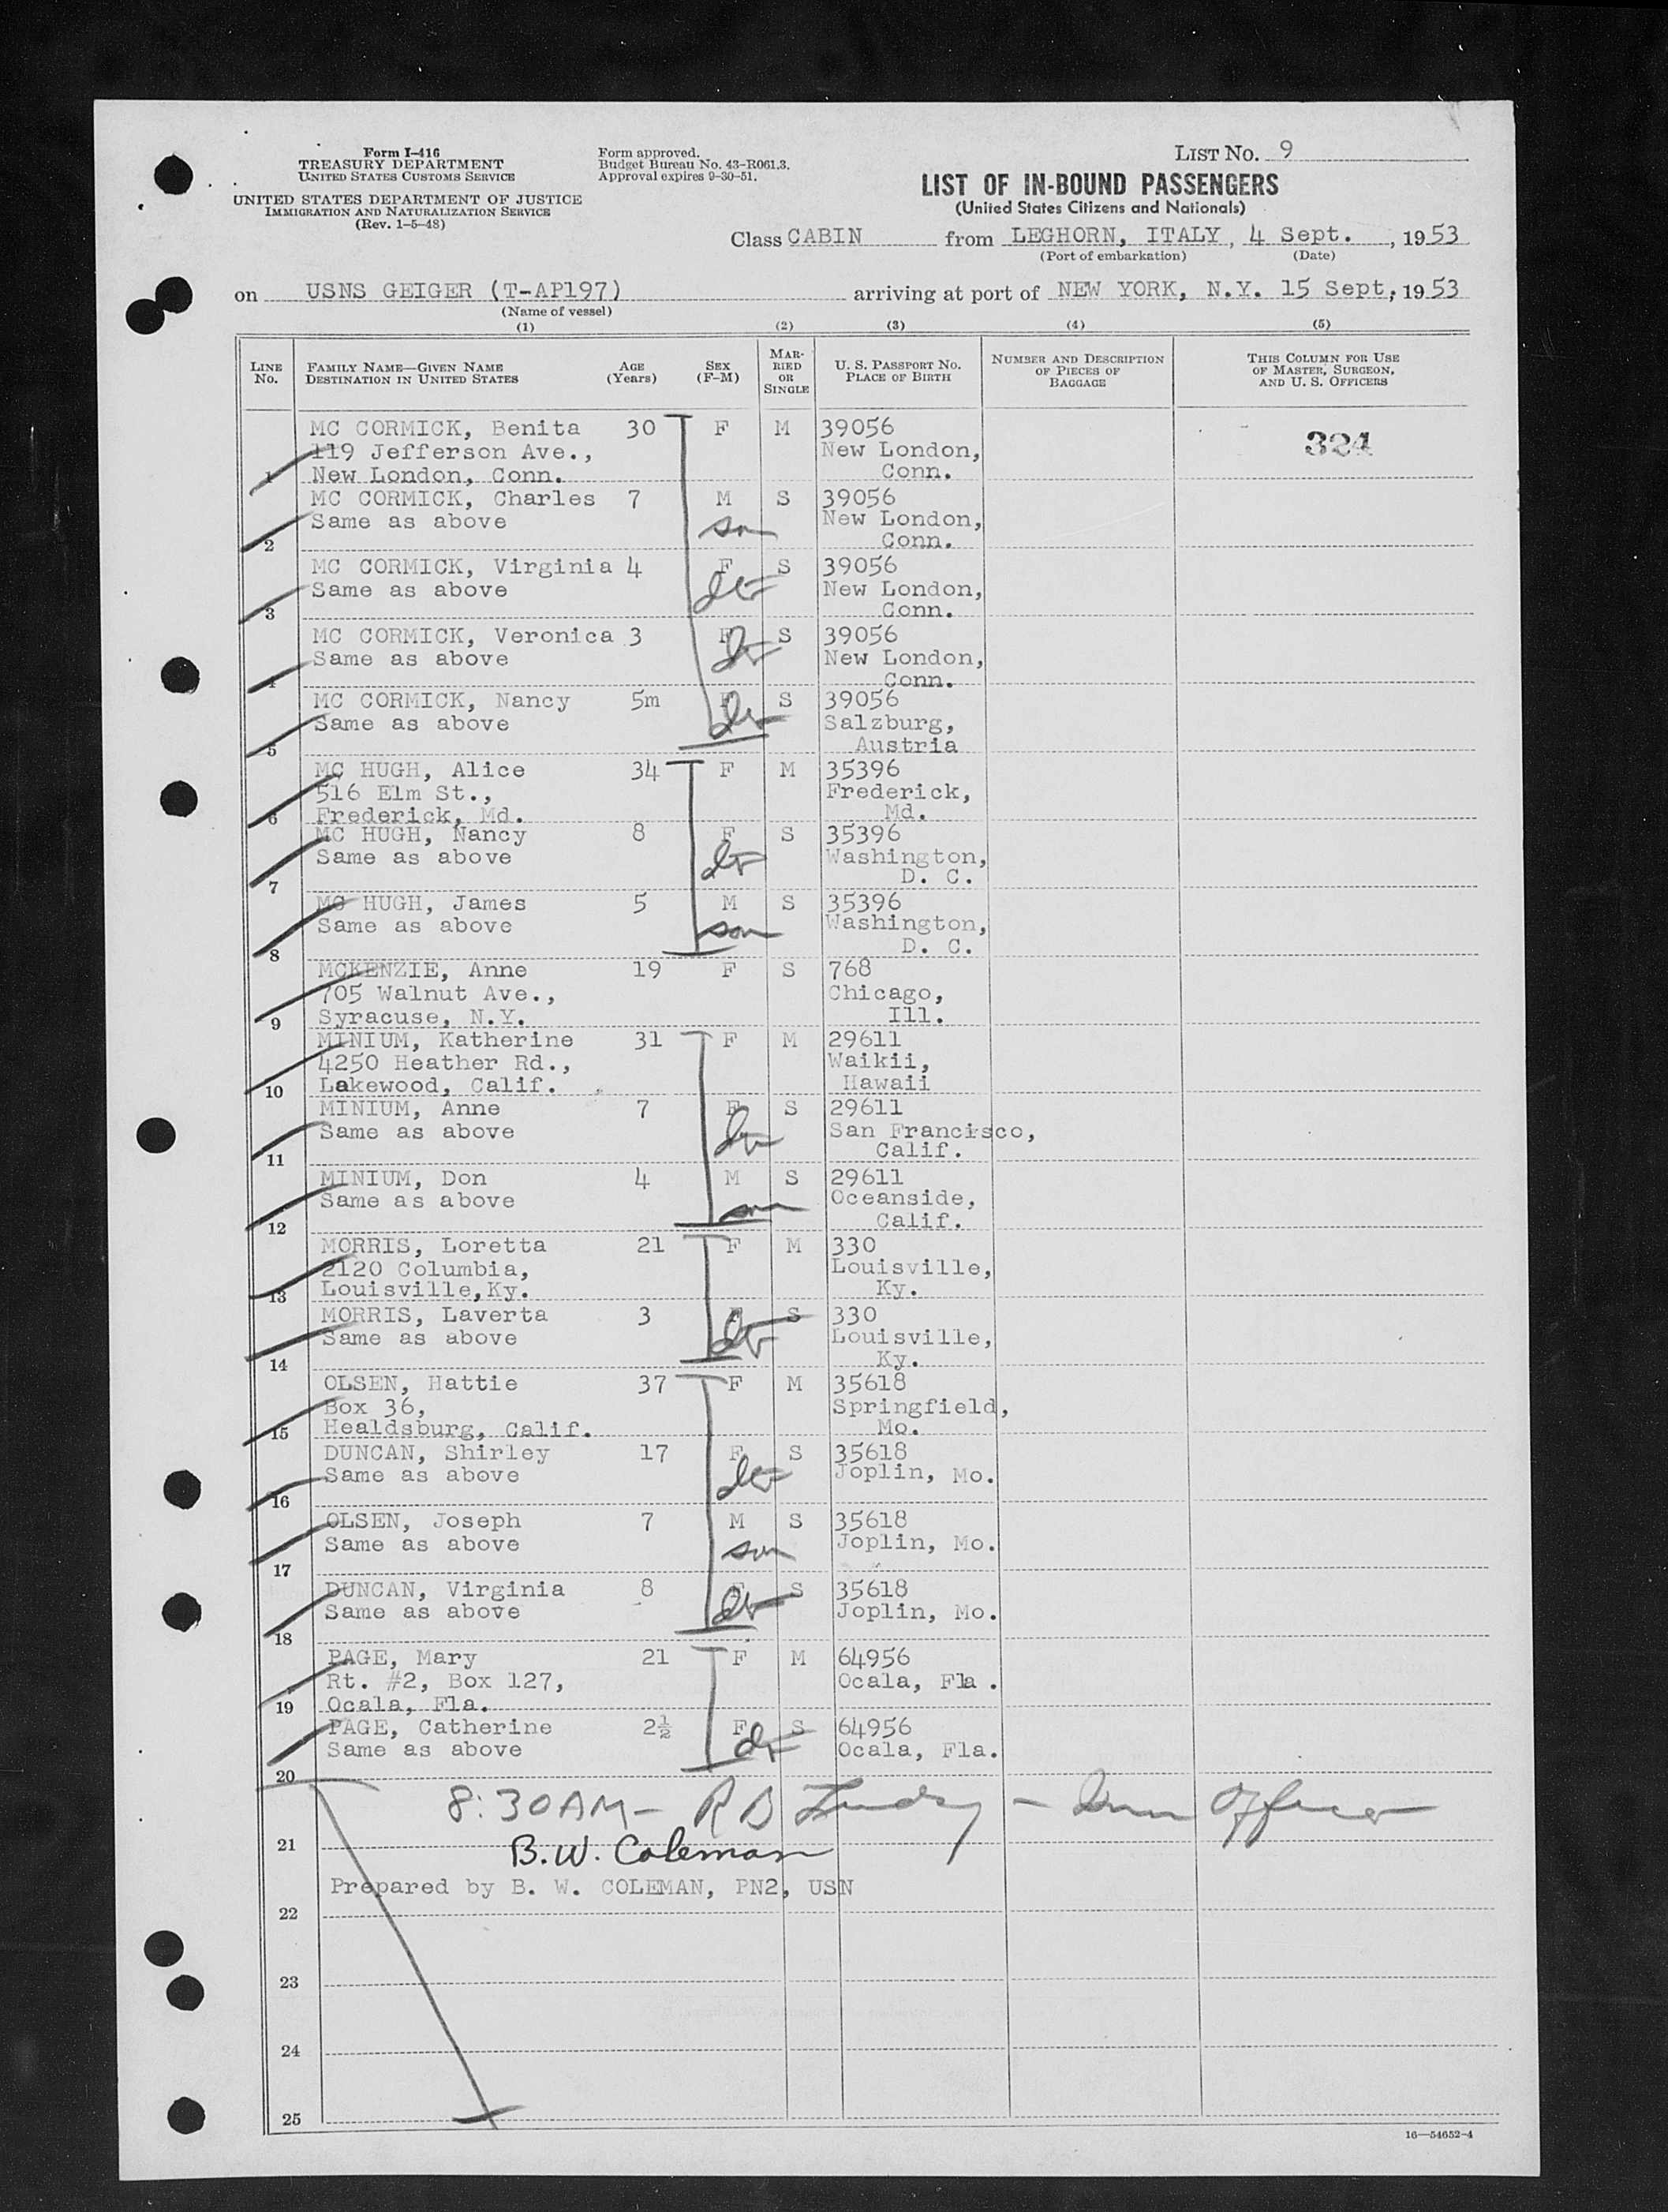 Form I-416
TREASURY DEPARTMENT
UNITED STATES CUSTOMS SERVICE
UNITED STATES DEPARTMENT OF JUSTICE
IMMIGRATION AND NATURALIZATION SERVICE
(Rev. 1-5-48)
Form approved.
Budget Bureau No. 43-R061.3.
Approval expires 9-30-51.
LIST NO. 9
LIST OF IN-BOUND PASSENGERS
(United States Citizens and Nationals)
Class CABIN from LEGHORN, ITALY, 4 Sept., 1953
(Port of embarkation) (Date)
on USNS GEIGER (T-AP197) arriving at port of NEW YORK, N.Y. 15 Sept, 1953
(Name of vessel)
(1) (2) (3) (4) (5)
LINE NO. FAMILY NAME—GIVEN NAME DESTINATION IN UNITED STATES AGE (Years) SEX (F-M) MARRIED OR SINGLE U. S. PASSPORT NO. PLACE OF BIRTH NUMBER AND DESCRIPTION OF PIECES OF BAGGAGE THIS COLUMN FOR USE OF MASTER, SURGEON, AND U. S. OFFICERS
MC CORMICK, Benita 30 F M 39056
119 Jefferson Ave., New London, 324
1 New London, Conn. Conn.
MC CORMICK, Charles 7 M S 39056
Same as above son New London,
2 Conn.
MC CORMICK, Virginia 4 F S 39056
Same as above New London,
3 Conn.
MC CORMICK, Veronica 3 F S 39056
Same as above New London,
4 Conn.
MC CORMICK, Nancy 5m F S 39056
Same as above Salzburg,
5 Austria
MC HUGH, Alice 34 F M 35396
516 Elm St., Frederick,
6 Frederick, Md. Md.
MC HUGH, Nancy 8 F S 35396
Same as above Washington,
7 D. C.
MC HUGH, James 5 M S 35396
Same as above son Washington,
8 D. C.
MCKENZIE, Anne 19 F S 768
705 Walnut Ave., Chicago,
9 Syracuse, N.Y. Ill.
MINIUM, Katherine 31 F M 29611
4250 Heather Rd., Waikii,
10 Lakewood, Calif. Hawaii
MINIUM, Anne 7 F S 29611
Same as above San Francisco,
11 Calif.
MINIUM, Don 4 M S 29611
Same as above son Oceanside,
12 Calif.
MORRIS, Loretta 21 F M 330
2120 Columbia, Louisville,
13 Louisville,Ky. Ky.
MORRIS, Laverta 3 F S 330
Same as above Louisville,
14 Ky.
OLSEN, Hattie 37 F M 35618
Box 36, Springfield,
15 Healdsburg, Calif. Mo.
DUNCAN, Shirley 17 F S 35618
Same as above Joplin, Mo.
16
OLSEN, Joseph 7 M S 35618
Same as above son Joplin, Mo.
17
DUNCAN, Virginia 8 F S 35618
Same as above Joplin, Mo.
18
PAGE, Mary 21 F M 64956
Rt. #2, Box 127, Ocala, Fla.
19 Ocala, Fla.
PAGE, Catherine 2½ F S 64956
Same as above Ocala, Fla.
20
8:30AM — R B — Imm Officer
21 B.W. Coleman
Prepared by B. W. COLEMAN, PN2, USN
22
23
24
25
16—54652-4